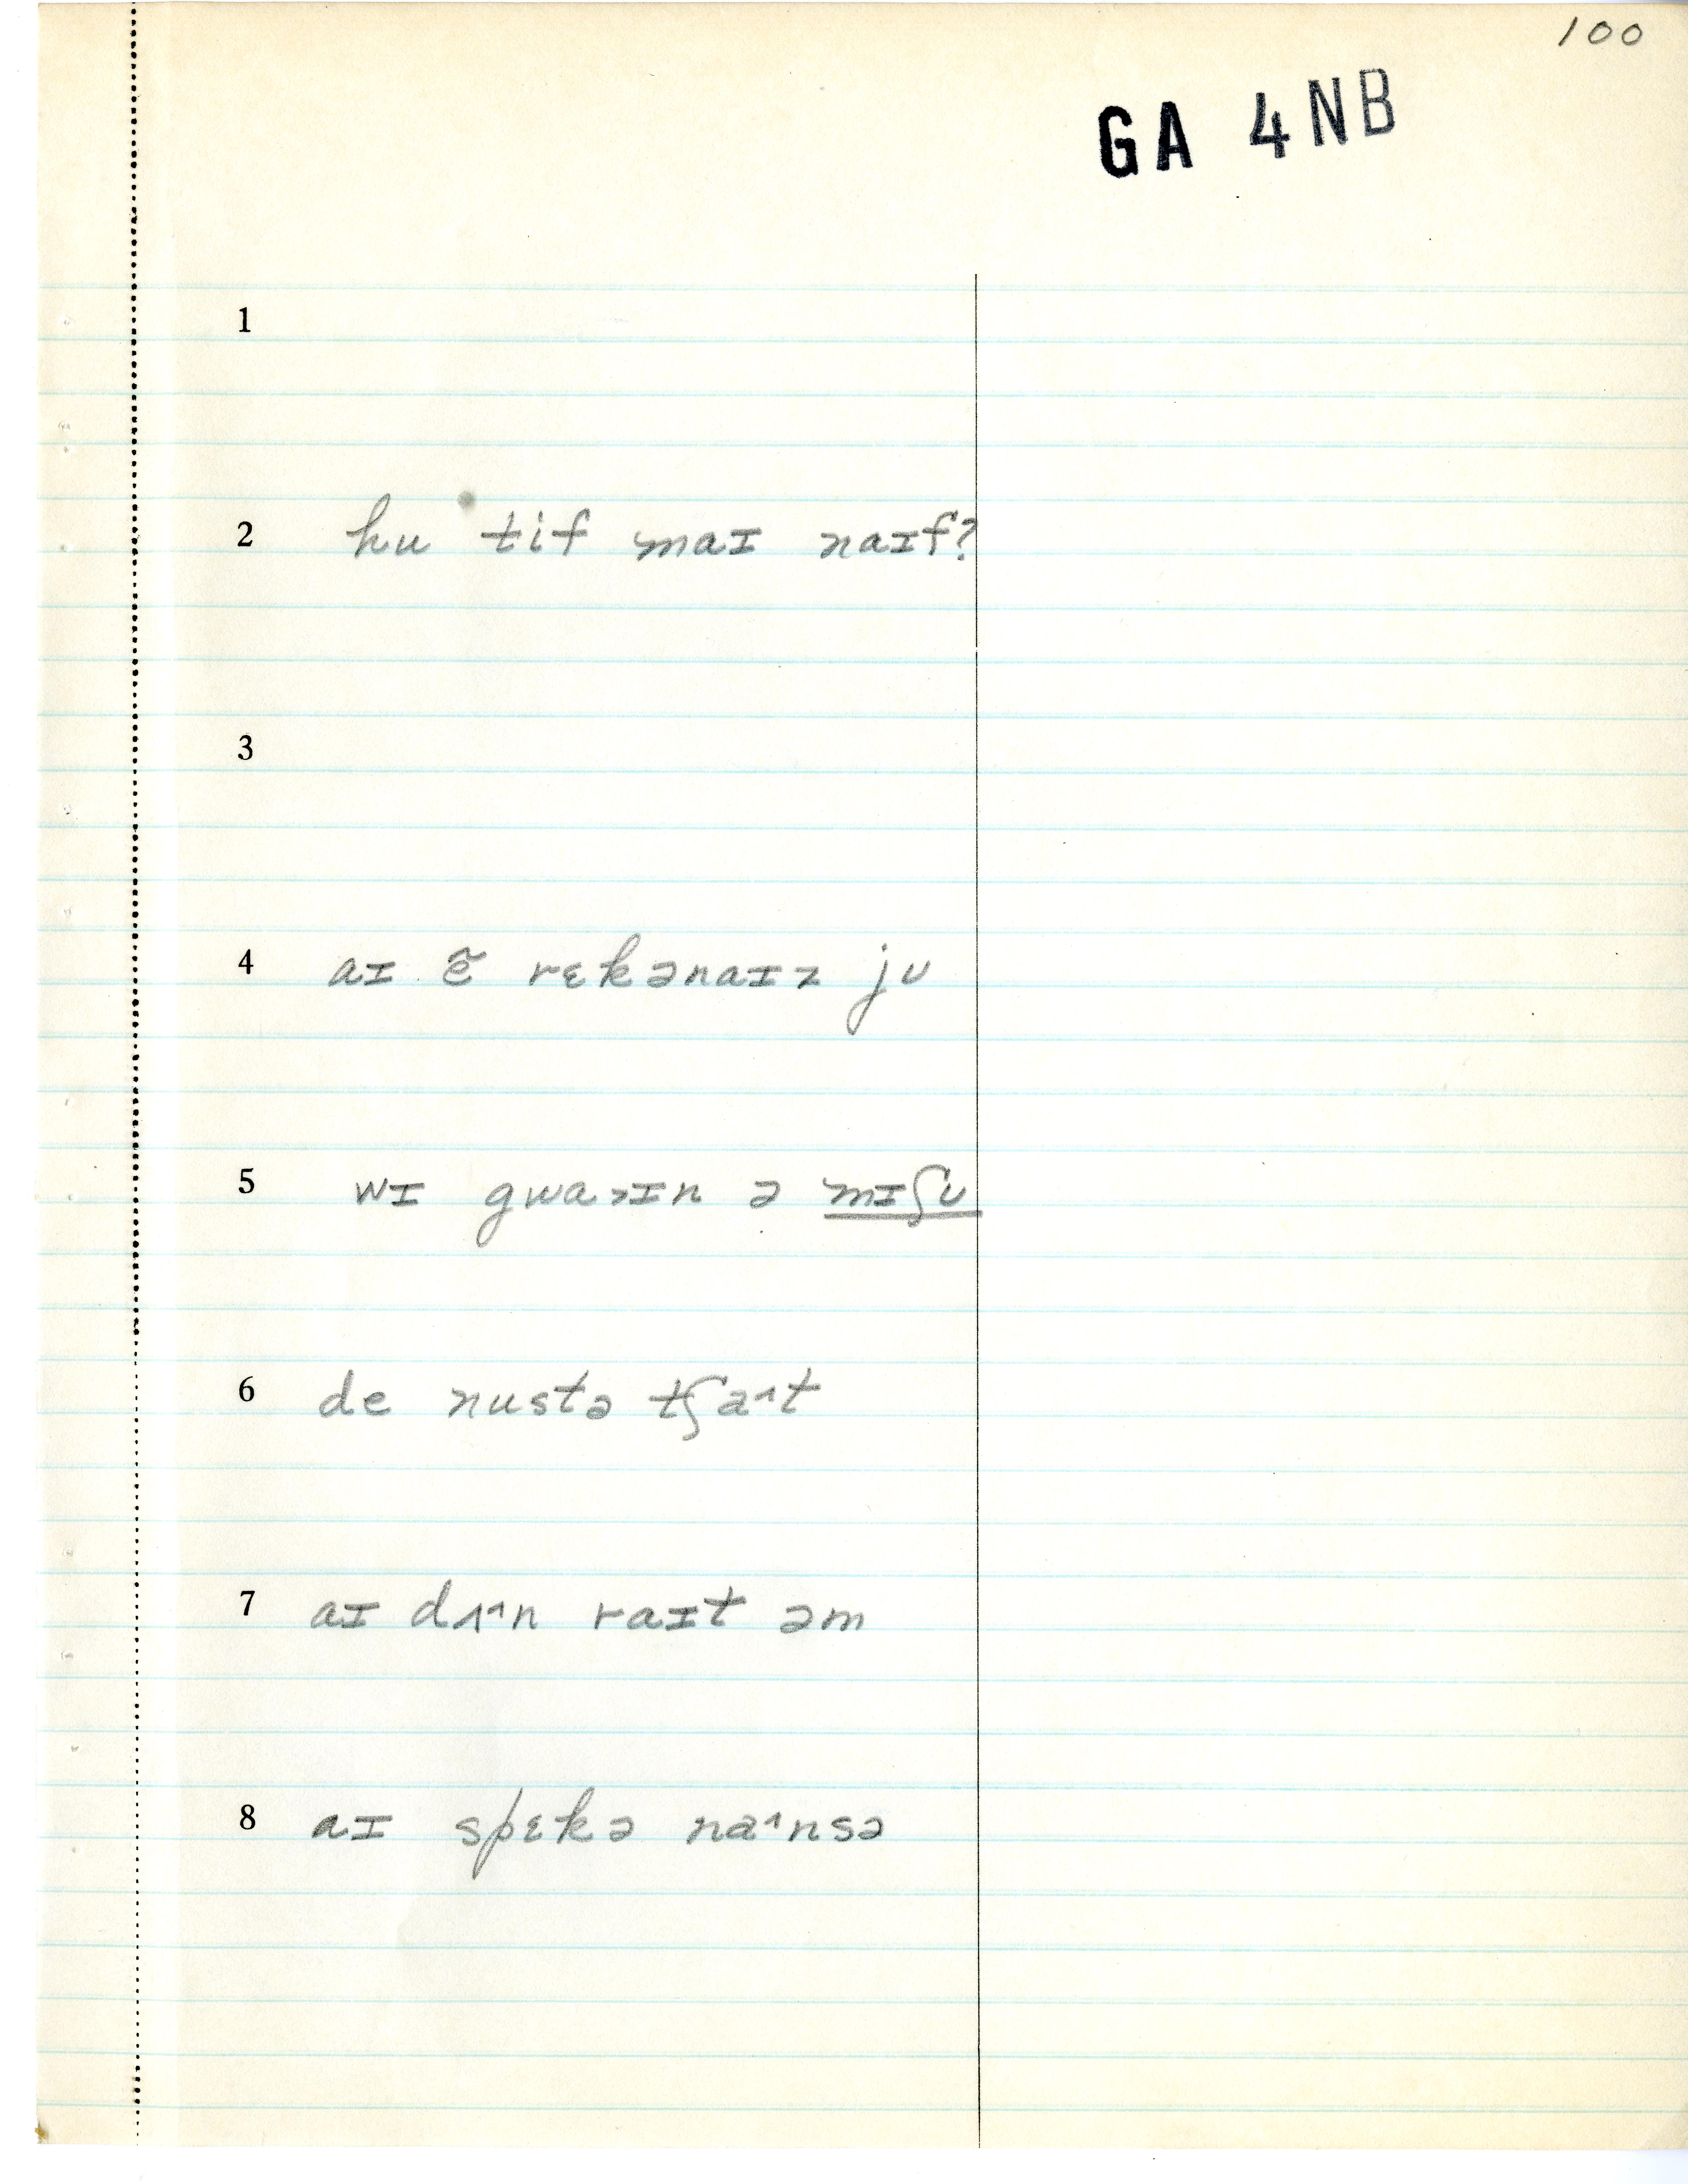 100
GA 4NB
1
2 hu tif maɪ naɪf?
3
4 aɪ ẽ rɛkənaɪz ju
5 wɪ gwaɪn ə mɪʃu
6 de nustə tʃa˄t
7 aɪ dʌ˄n raɪt əm
8 aɪ spɛkə na˄nsə